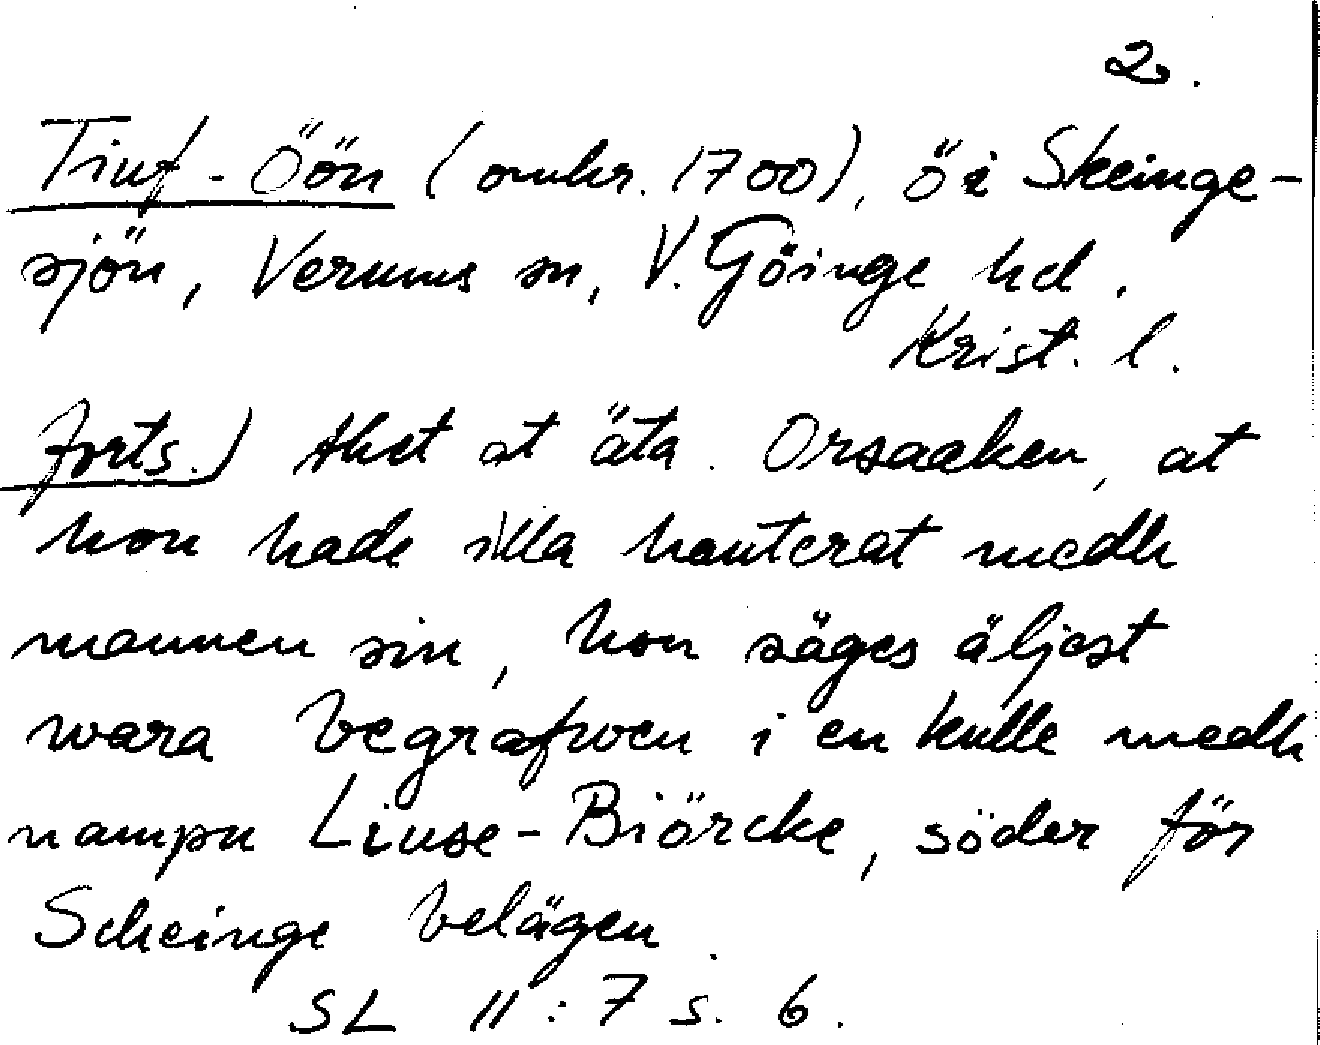 2.
Tiuf-Öön (omkr. 1700), ö i Skeinge-
sjön, Verums sn, V. Göinge hd.
Krist. l.
forts.) thet at äta. Orsaaken, at
hon hade illa hanterat medh
mannen sin, hon säges äljest
wara begrafwen i en kulle medh
nampn Liuse-Biörcke, söder för
Scheinge belägen.
SL 11:7 s. 6.